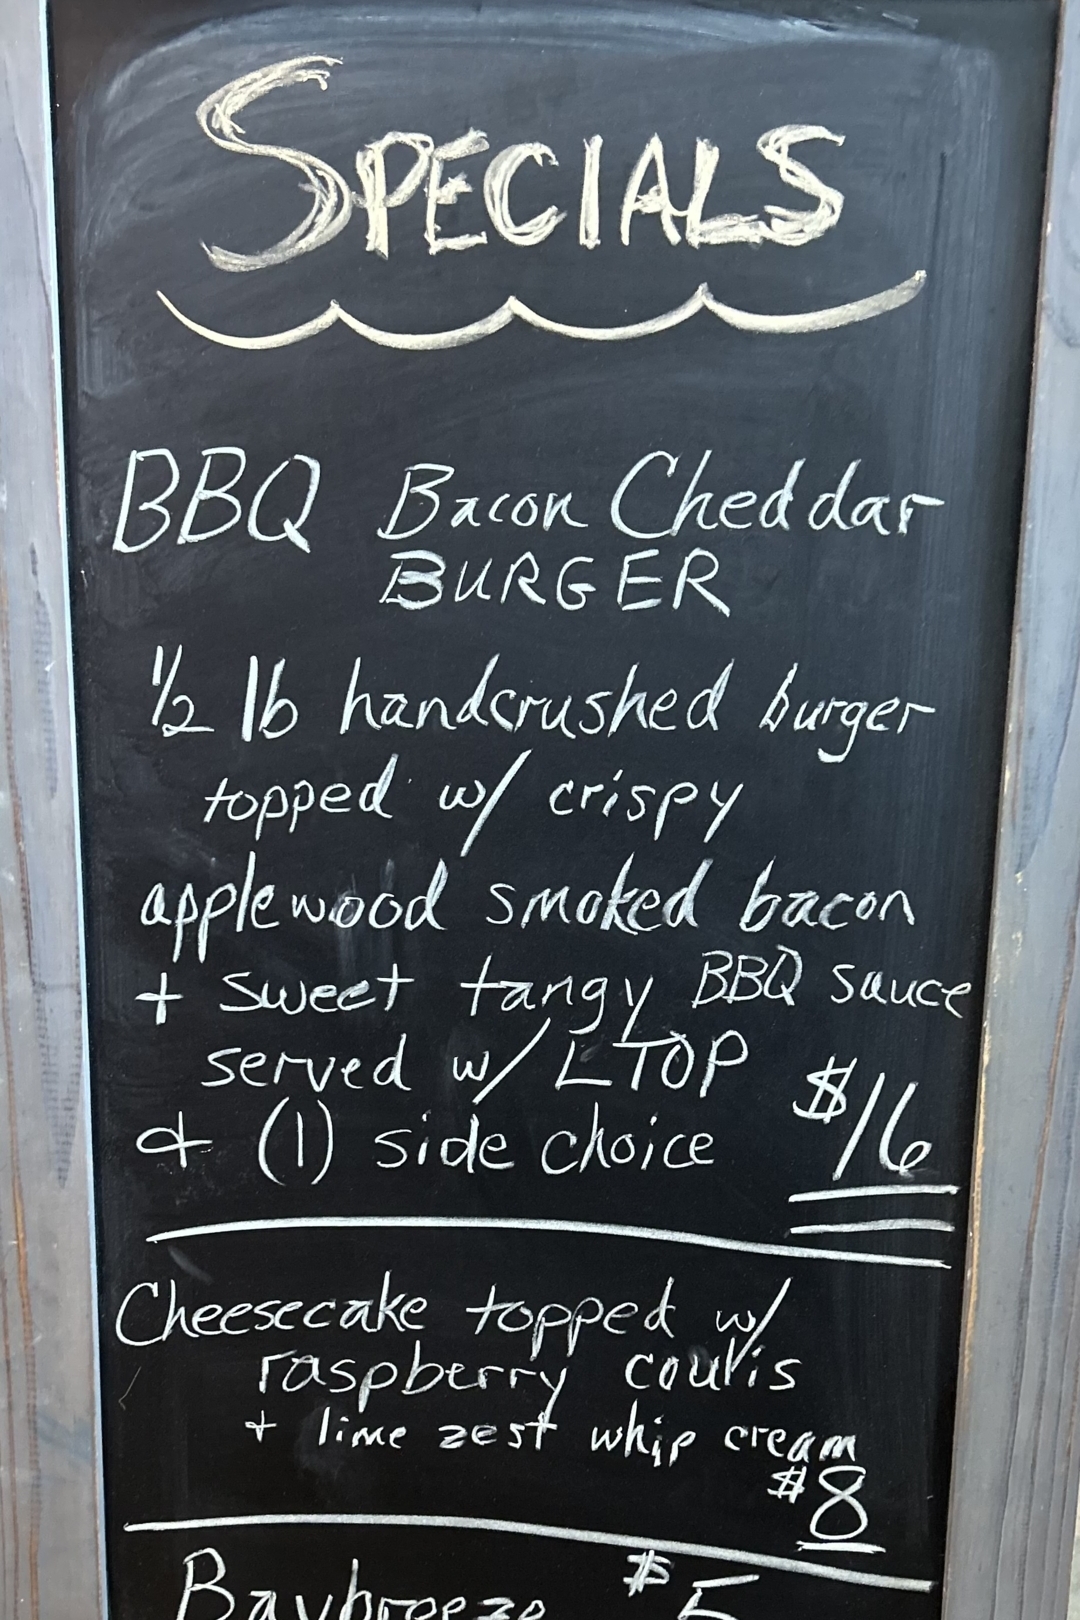 SPECIALS
BBQ Bacon Cheddar
BURGER
1/2 lb handcrushed burger
topped w/ crispy
applewood smoked bacon
+ sweet tangy BBQ sauce
served w/ LTOP
& (1) side choice $16
Cheesecake topped w/
raspberry coulis
+ lime zest whip cream
$8
Baybreeze $5